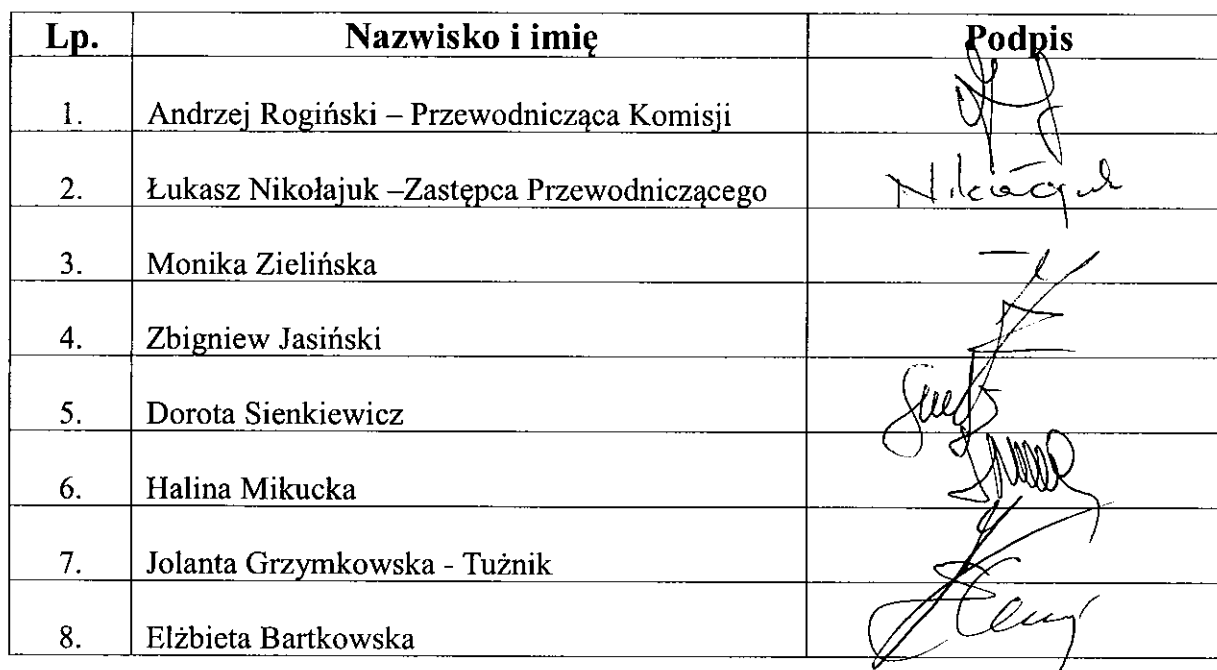 Lp. Nazwisko i imię Podpis
1. Andrzej Rogiński – Przewodnicząca Komisji
2. Łukasz Nikołajuk –Zastępca Przewodniczącego Nikołajuk
3. Monika Zielińska
4. Zbigniew Jasiński
5. Dorota Sienkiewicz
6. Halina Mikucka
7. Jolanta Grzymkowska - Tużnik
8. Elżbieta Bartkowska